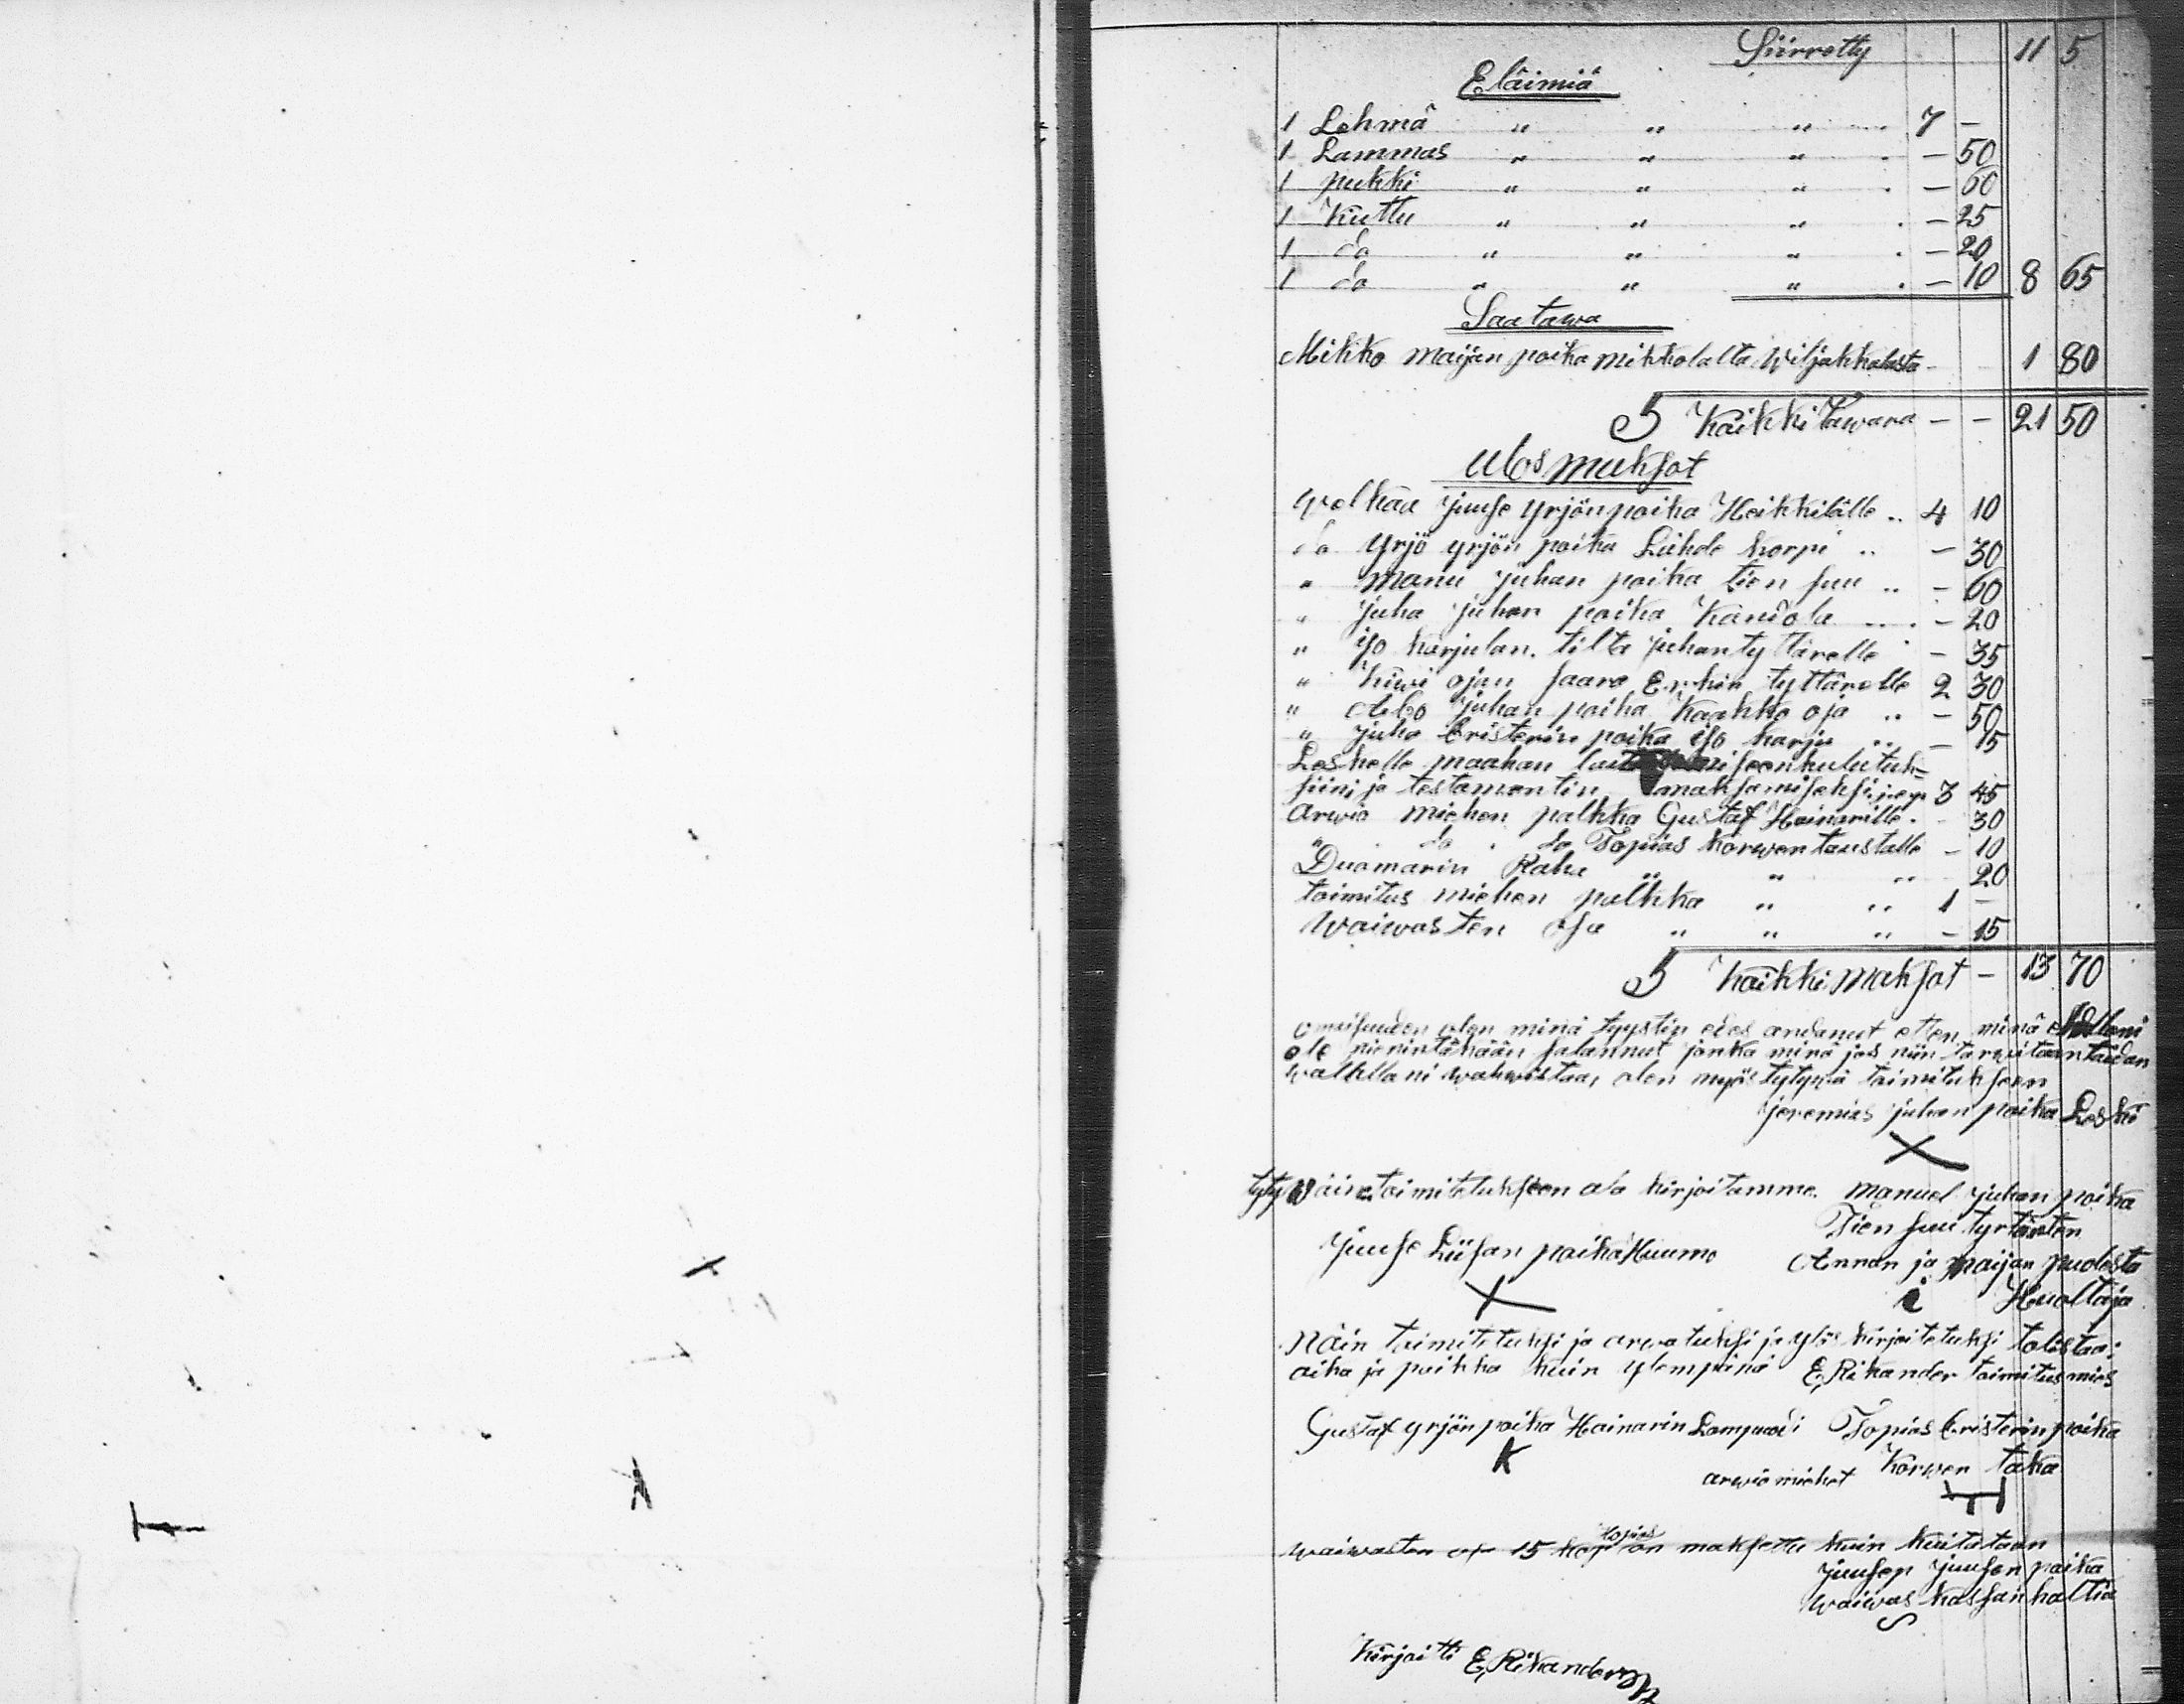 Siirretty 11 5
Eläimiä
1 Lehmä " " " 7 -
1 Lammas " " " - 50
1 pukki " " " - 60
1 Kuttu " " " - 25
1 do " " " - 20
1 do " " " - 10 8 65
Saatawa
Mikko maijan poika mikkolalta Wiljakkalasta 1 80
S Kaikki Tawara - - 21 50
Ulos maksot
Welkaa Juuse Yrjön poika Heikkilälle .. 4 10
do Yrjö yrjön poika Lähde korpi .. - 30
" Manu Juhan poika tien suu .. - 60
" Juha Juhan poika Kandola ... - 20
" iso karjulan tilta juhan tyttärelle - 35
" Kiwi ojan saara Erkin tyttärelle 2 30
" Abo Juhan poika Kaakko oja .. - 50
" Juho Cristerin poika iso karju .. - 15
Leskelle maahan kulutuk=
siini ja testamentin maksamiseksi 3 45
Arwio miehen palkka Gustaf Hainarille - 30
" do do Topias Korwentaustalle - 10
Duomarin Raha " " " 20
toimitus miehen palkka " " 1 -
Waiwasten osa " " " - 15
S Kaikki maksot - 13 70
omaisuuden olen minä tyystin edes andanut etten minä
ole pienintäkään salannut jonka minä jos niin tarwitaan taidan
walallani wahwistaa, olen myös tytywä toimituksen
Jeremias juhan poika Leski
X
tytywäisetoimitetuksen ala kirjoitamme. Manuel juhan poika
Tien suu tyrtärten
Juuse Liisan poika Kuumo Annan ja Maijan puolesta
X Huoltaja
Näin toimitetuksi ja arwatuksi ja ylös kirjoitetuksi tolistaa;
aika ja paikka kuin ylempänä E, Rikander toimitusmies
Gustaf yrjön poika Hainarin Lampuodi Topias Cristerin poika
K arwiomiehet Korwen taka
waiwasten os 15 kop on maksettu kuin kuitataan
Juusep Juusen poika
waiwas kassan haltia
Kirjoitti E, Rikander